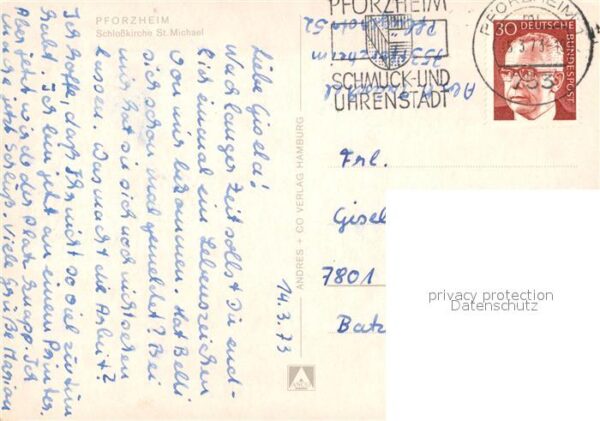 PFORZHEIM
Schloßkirche St. Michael
14.3.73
Liebe Gisela!
Nach langer Zeit sollst Du end-
lich einmal ein Lebenszeichen
von mir bekommen. Hat Belli
sich schon mal gemeldet? Bei
mir hat sie sich noch nicht sehen
lassen. Was macht die Arbeit?
Ich hoffe, daß Ihr nicht so viel zu tun
habt. Ich bin jetzt an einem Printer.
Aber jetzt wird der Platz knapp. Ich
mache jetzt Schluß. Viele Grüße Marion
ANDRES + CO VERLAG HAMBURG
ANDRES
PFORZHEIM
SCHMUCK-UND
UHRENSTADT
PFORZHEIM
753
30
DEUTSCHE
BUNDESPOST
753
Frl.
Gisel
7801
Batz
privacy protection
Datenschutz